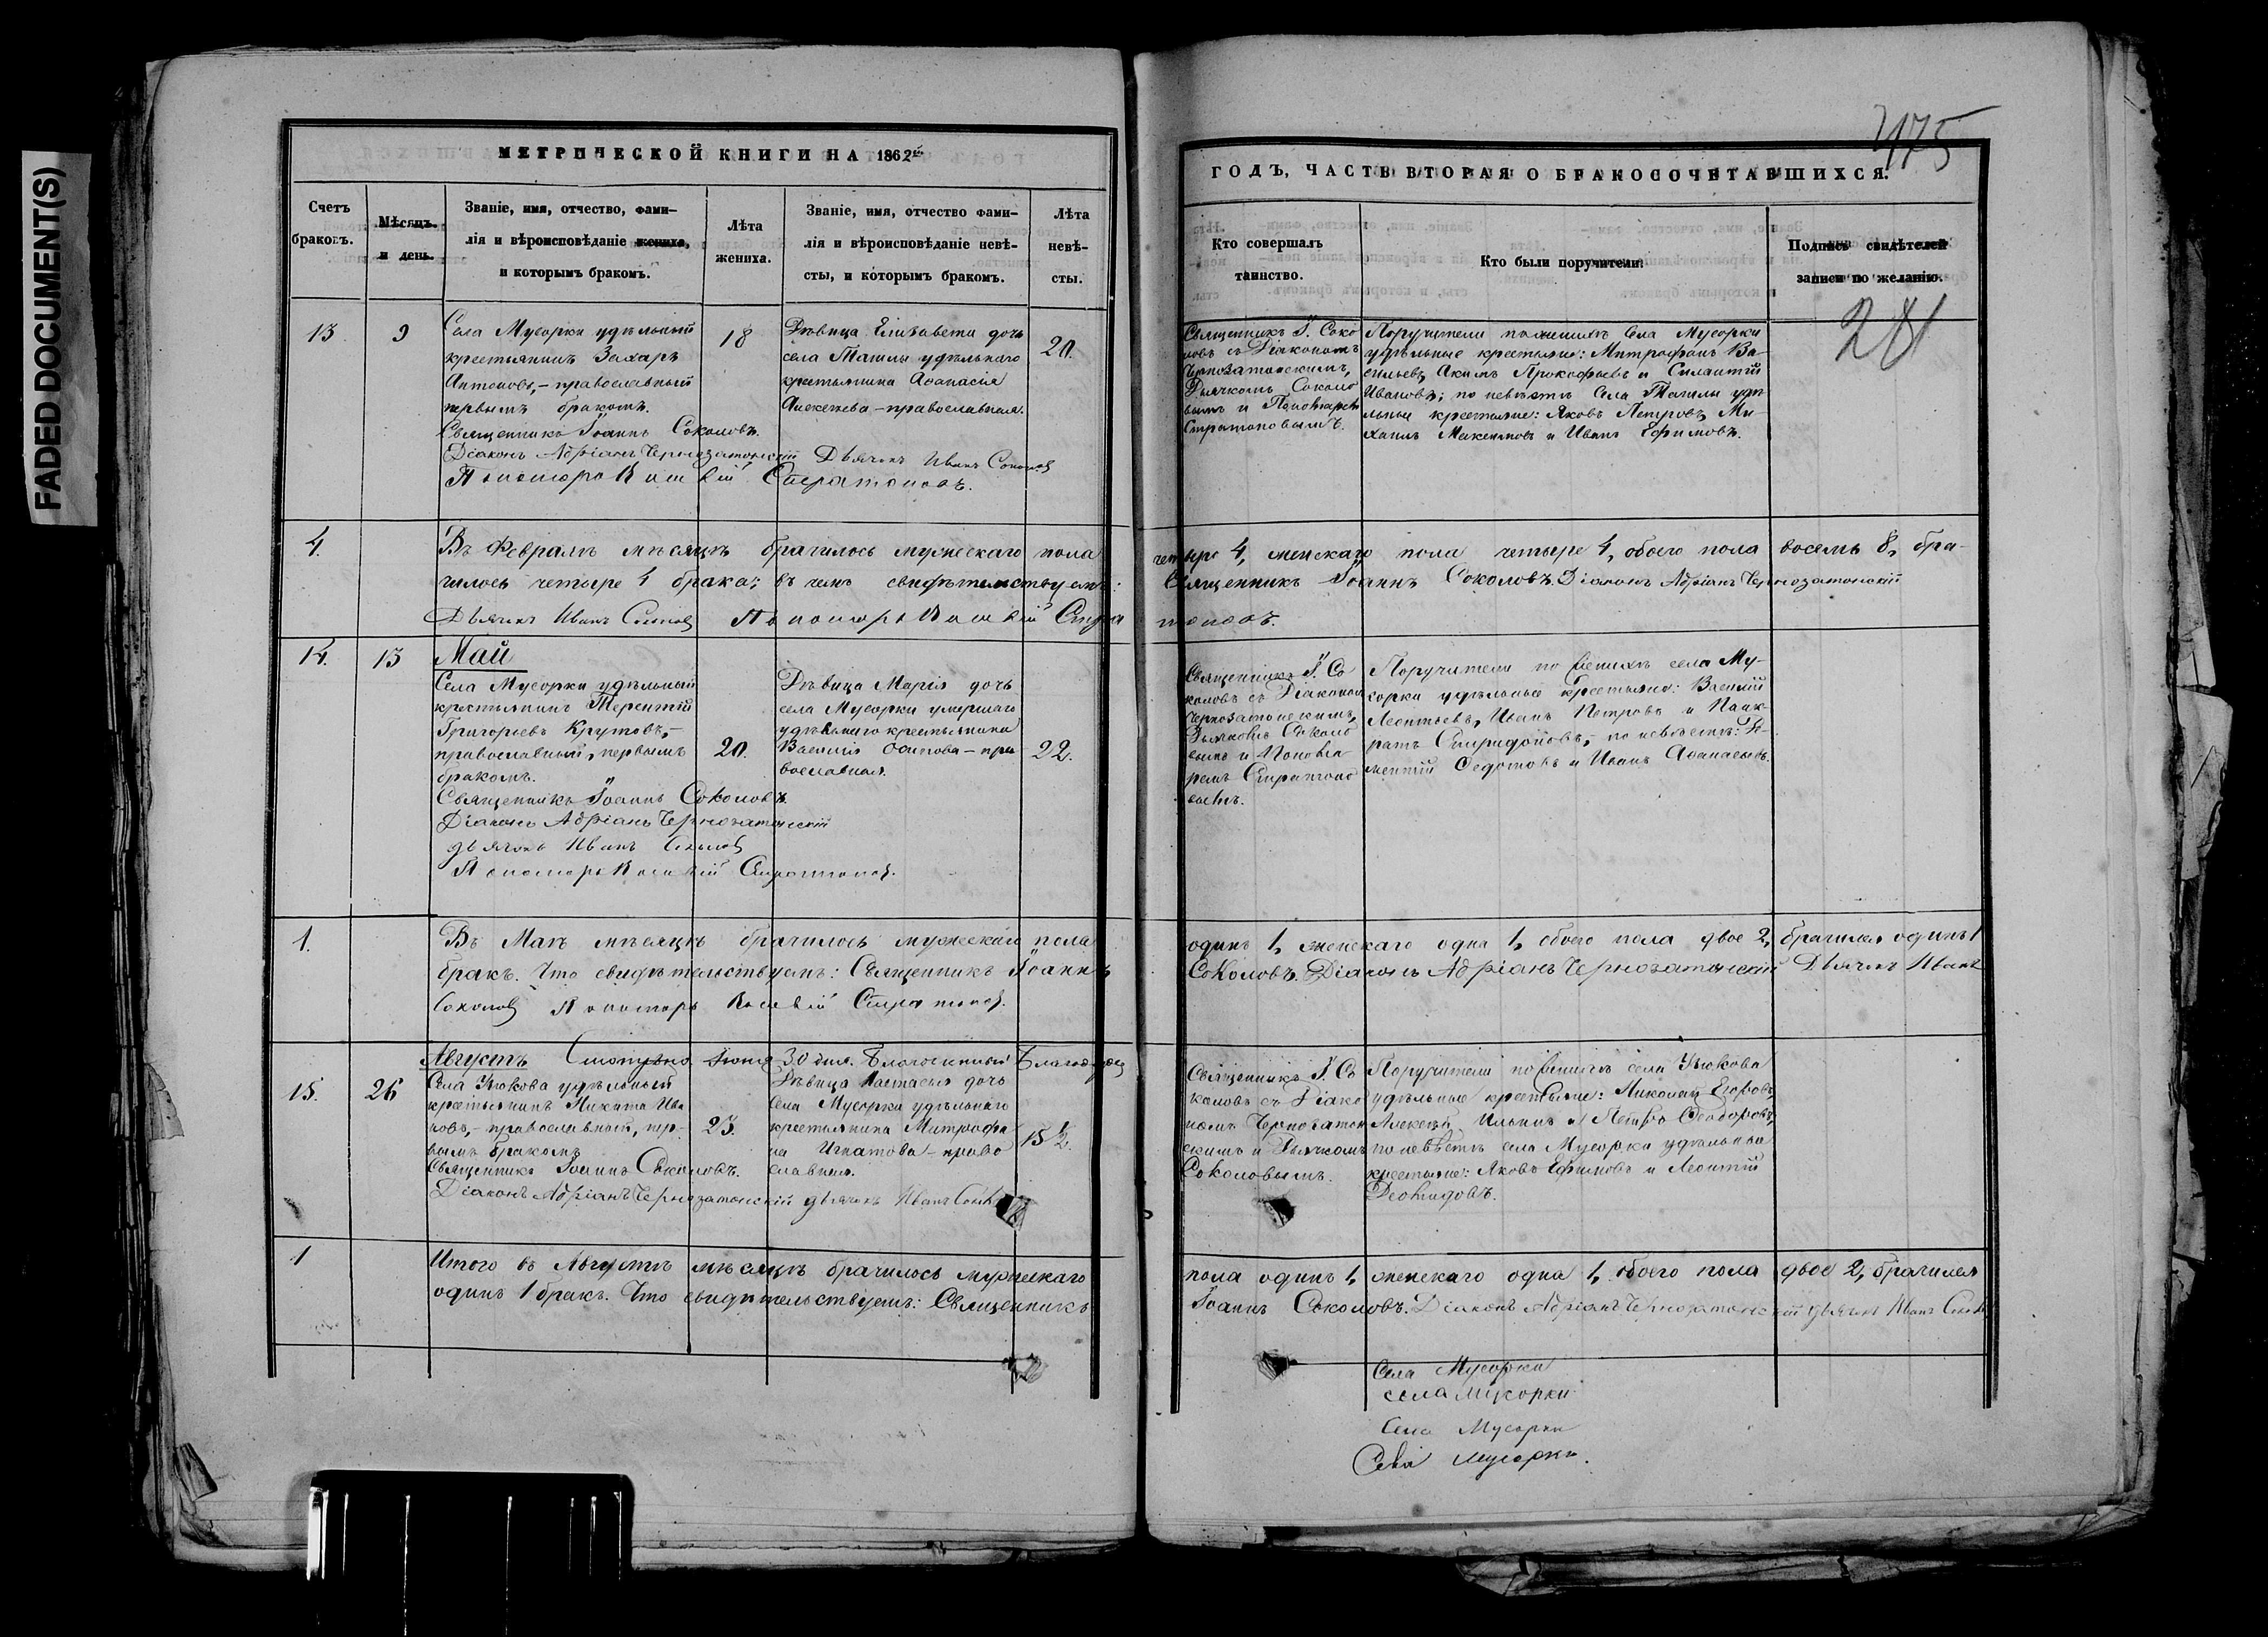 FADED DOCUMENT(S)
МЕТРИЧЕСКОЙ КНИГИ НА 1862й
Счетъ браковъ.
Мѣсяцъ и день.
Званіе, имя, отчество, фами-
лія и вѣроисповѣданіе жениха,
и которымъ бракомъ.
Лѣта
жениха.
Званіе, имя, отчество фами-
лія и вѣроисповѣданіе невѣ-
сты, и которымъ бракомъ.
Лѣта
невѣ-
сты.
13
9
Села Мусорки удѣльный
крестьянинъ Захаръ
Антоновъ, - православный
первымъ бракомъ.
18
Дѣвица Елизавета дочь
села Ташлы удѣльнаго
крестьянина Аѳанасія
Алексѣева - православная.
20.
Священникъ Іоаннъ Соколовъ.
Діаконъ Адріанъ Чернозатонскій Дьячекъ Иванъ Соколовъ
Пономарь Стратоновъ.
4.
Въ Февралѣ мѣсяцѣ брачилось мужескаго пола
чилось четыре 4 брака; въ чемъ свидѣтельствуемъ:
Дьячекъ Иванъ Соколовъ Пономарь Стра
14.
13
Май
Села Мусорки удѣльный
крестьянинъ Терентій
Григорьевъ Крутовъ, -
православный, первымъ
бракомъ.
20.
Дѣвица Марія дочь
села Мусорки умершаго
удѣльнаго крестьянина
Василія Осипова - пра
вославная.
22.
Священникъ Іоаннъ Соколовъ.
Діаконъ Адріанъ Чернозатонскій
дьячекъ Иванъ Соколовъ
Пономарь Стратоновъ.
1.
Въ Маѣ мѣсяцѣ брачилось мужескаго пола
бракъ. Что свидѣтельствуемъ: Священникъ Іоаннъ
Соколовъ Пономарь Стратоновъ.
Августъ Смотрѣно Іюня 30 дня. Благочинный
15.
26
Села Узюкова удѣльный
крестьянинъ Никита Ива
новъ, - православный, пер-
вымъ бракомъ
23.
Дѣвица Настасья дочь
села Мусорки удѣльнаго
крестьянина Митрофа
на Игнатова - право
славная.
15 1/2.
Священникъ Іоаннъ Соколовъ.
Діаконъ Адріанъ Чернозатонскій дьячекъ Иванъ
1
Итого въ Августѣ мѣсяцѣ брачилось мужескаго
одинъ 1 бракъ. Что свидѣтельствуемъ: Священникъ
475
ГОДЪ, ЧАСТЬ ВТОРАЯ О БРАКОСОЧЕТАВШИХСЯ.
Кто совершалъ
таинство.
Кто были поручители.
Подпись свидѣтелей
записи по желанію.
281
Священникъ І. Соко
ловъ съ Діакономъ
Чернозатонскимъ,
Дьячкомъ Соколо
вымъ и Пономаремъ
Стратоновымъ.
Поручители по женихѣ Села Мусорки
удѣльные крестьяне: Митрофанъ Ва-
сильевъ, Акимъ Прокофьевъ и Силантій
Ивановъ; по невѣстѣ Села Ташлы удѣ
льные крестьяне: Яковъ Петровъ, Ми-
хаилъ Максимовъ и Иванъ Ефимовъ.
четыре 4, женскаго пола четыре 4, обоего пола восемь 8, бра-
Священникъ Іоаннъ Соколовъ. Діаконъ Адріанъ Чернозатонскій
тоновъ.
Священникъ І. Со
коловъ съ Діаконом
Чернозатонскимъ,
Дьячкомъ Соколо
вымъ и Понома
ремъ Стратоно
вымъ.
Поручители по женихѣ села Му-
сорки удѣльные крестьяне: Василій
Леонтьевъ, Иванъ Петровъ и Панк-
ратъ Спиридоновъ, - по невѣстѣ:
Ѳедотовъ и Иванъ Аѳанасьевъ.
одинъ 1, женскаго одна 1, обоего пола двое 2, брачился одинъ 1
Соколовъ. Діаконъ Адріанъ Чернозатонскій Дьячекъ Иванъ
Священникъ І. Со
коловъ съ Діако
номъ Чернозатон
скимъ и Дьячкомъ
Соколовымъ.
Поручители по женихѣ села Узюкова
удѣльные крестьяне: Николай Егоровъ,
Алексѣй Ильинъ и Петръ Ѳеодоровъ,
по невѣстѣ села Мусорки удѣльные
крестьяне: Яковъ Ефимовъ и Леонтій
пола одинъ 1, женскаго одна 1, обоего пола двое 2, брачился
Іоаннъ Соколовъ. Діаконъ Адріанъ Чернозатонскій дьячекъ Иванъ
Села Мусорки
села Мусорки
Села Мусорки
Села Мусорки.